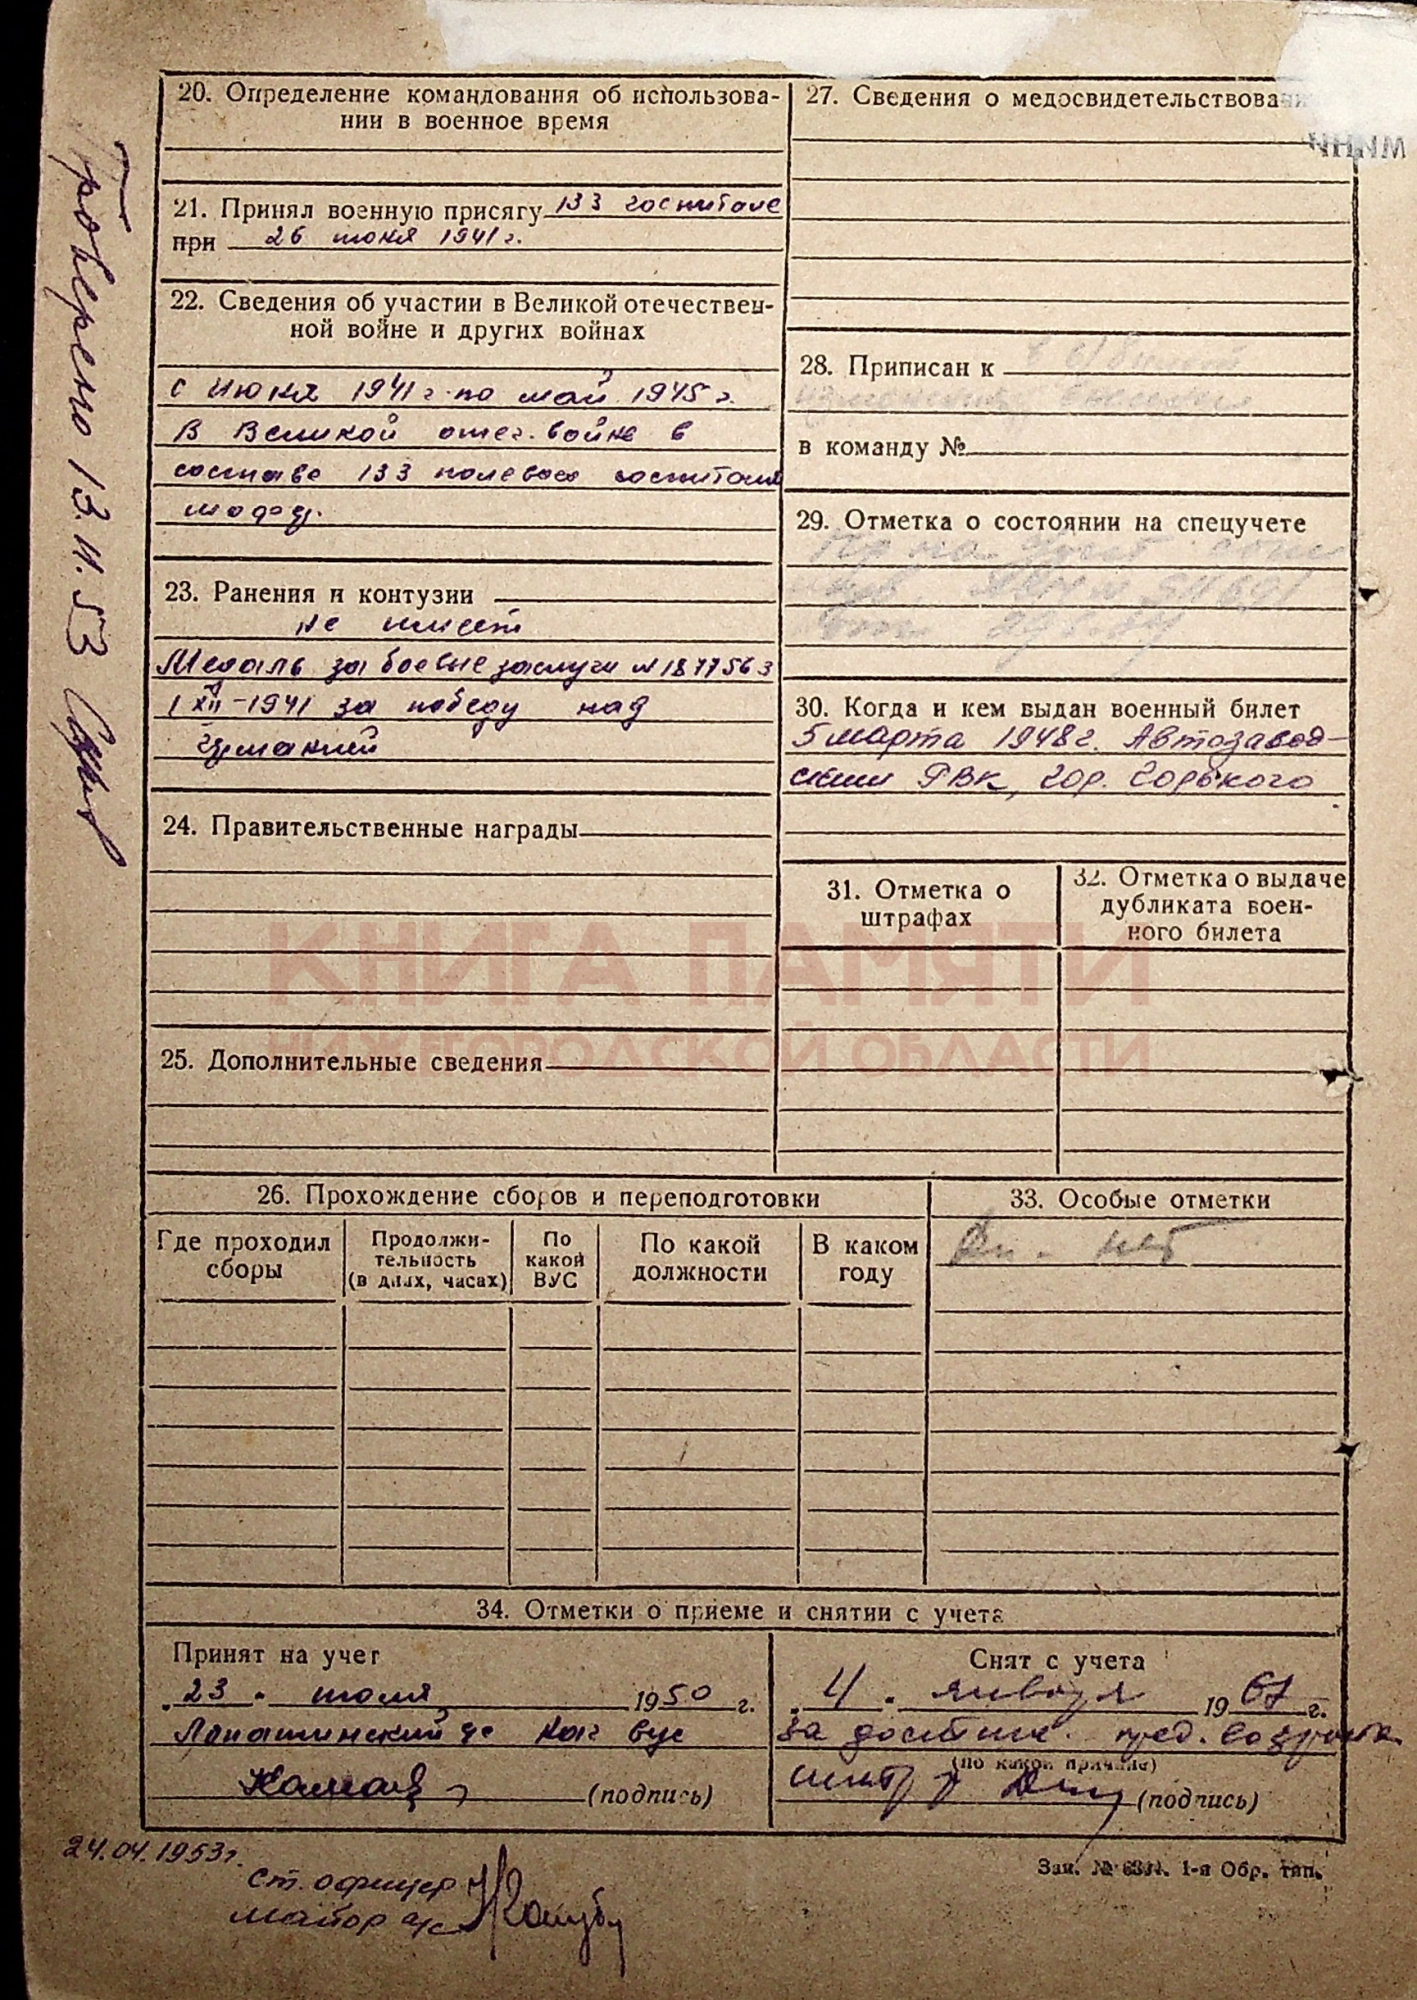 20. Определение командования об использова-
нии в военное время
21. Принял военную присягу 133 госпитале
при 26 июня 1941 г.
22. Сведения об участии в Великой отечествен-
ной войне и других войнах
с июня 1941 г. по май 1945 г.
В Великой отеч. войне в
составе 133 полевого госпиталя
23. Ранения и контузии
не имеет
Медаль за боевые заслуги N 1877563
1 XII-1941 за победу над
24. Правительственные награды
25. Дополнительные сведения
27. Сведения о медосвидетельствован
28. Приписан к
в команду №
29. Отметка о состоянии на спецучете
30. Когда и кем выдан военный билет
5 марта 1948 г. Автозавод-
ским РВК, гор. Горького
31. Отметка о
штрафах
32. Отметка о выдаче
дубликата воен-
ного билета
КНИГА ПАМЯТИ
НИЖЕГОРОДСКОЙ ОБЛАСТИ
26. Прохождение сборов и переподготовки
Где проходил
сборы
Продолжи-
тельность
(в днях, часах)
По
какой
ВУС
По какой
должности
В каком
году
33. Особые отметки
нет
34. Отметки о приеме и снятии с учета
Принят на учет
23 июля 1950 г.
(подпись)
Снят с учета
4 января 1967 г.
за достиж. пред. возраста
(по какой причине)
(подпись)
24.04.1953 г.
ст. офицер
майор а/с
Зак. 1-я Обр. тип.
Проверено 13.11.53